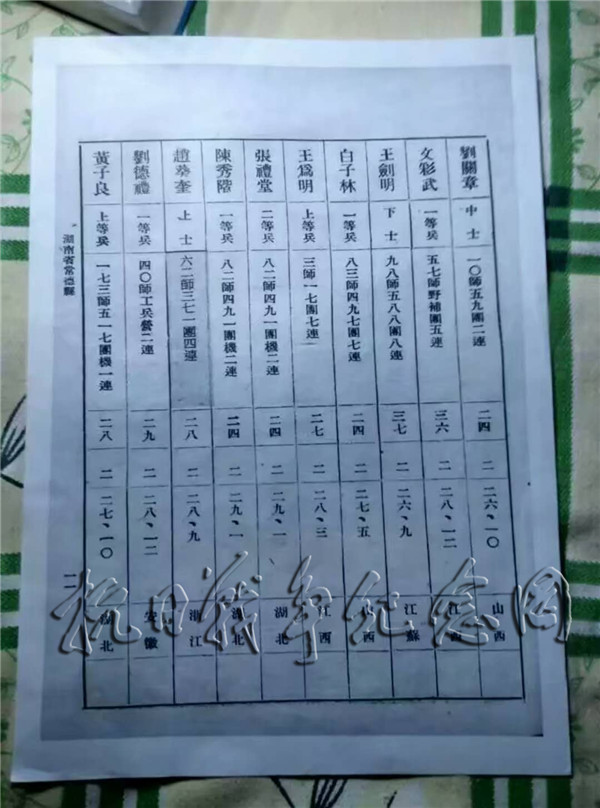 劉關章 中士 一〇師五九團二連 二四 二 二六、一〇 山西
文彩武 一等兵 五七師野補團五連 三六 二 二八、一二 江西
王劍明 下士 九八師五八八團八連 三七 二 二六、九 江蘇
白子林 一等兵 八三師四九七團七連 二四 二 二七、五 山西
王爲明 上等兵 三師一七團七連 二七 二 二八、三 江西
張禮堂 二等兵 八二師四九一團機二連 二四 二 二九、一 湖北
陳秀階 一等兵 八二師四九一團機二連 二四 二 二九、一 湖北
趙葵奎 上士 六二師三七一團四連 二八 二 二八、九 浙江
劉德禮 一等兵 四〇師工兵營二連 二九 二 二八、一二 安徽
黃子良 上等兵 一七三師五一七團機一連 二八 二 二七、一〇 湖北
湖南省常德縣
一一
抗日战争纪念网